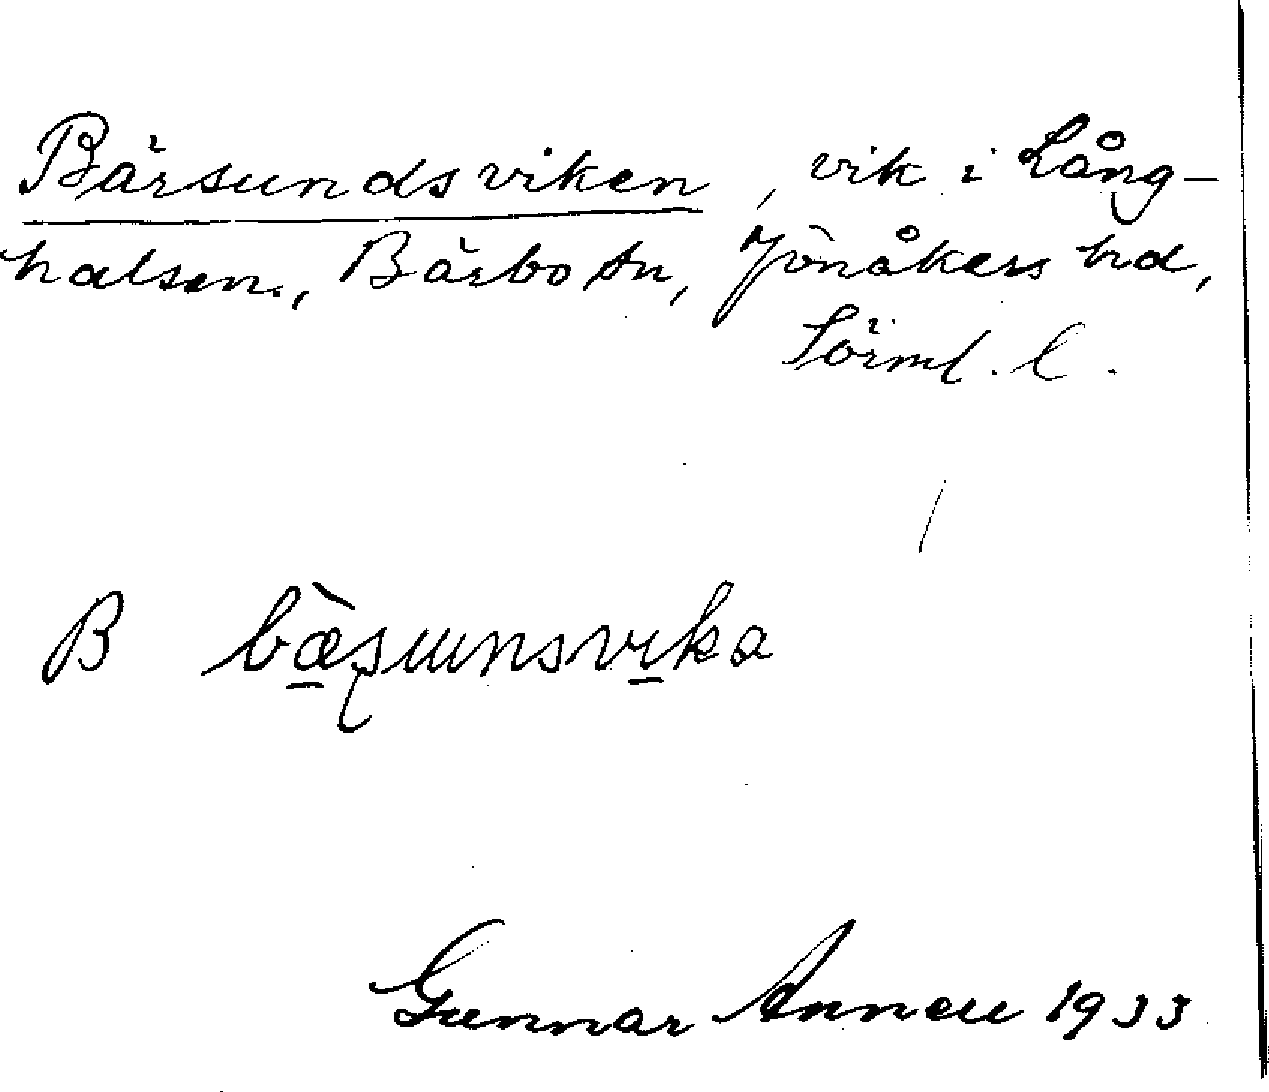 Bärsundsviken, vik i Lång-
halsen, Bärbo sn, Jönåkers hd,
Sörml. l.
B bæ̀ʂɯnsvika
Gunnar Annell 1933